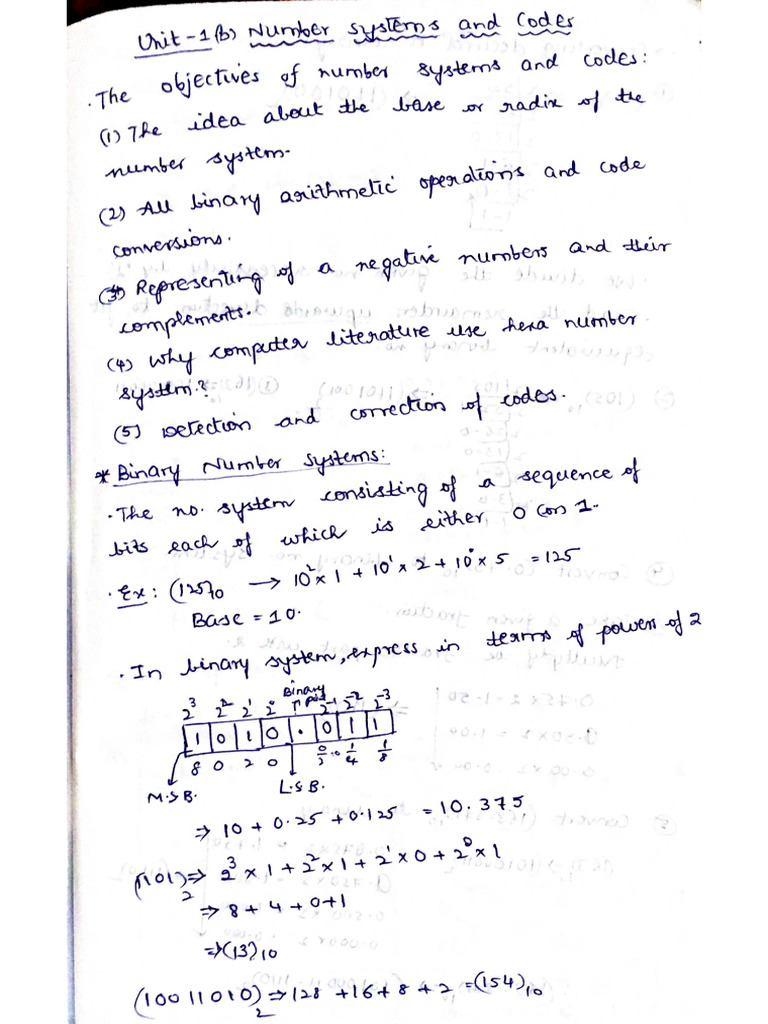 Unit-1(b) Number systems and Codes
.The objectives of number systems and codes:
(1) The idea about the base or radix of the
number system.
(2) All binary arithmetic operations and code
conversions.
(3) Representing of a negative numbers and their
complements.
(4) Why computer literature use hexa number
system?
(5) Detection and correction of codes.
* Binary Number systems:
.The no. system consisting of a sequence of
bits each of which is either 0 (or) 1.
.Ex: (125)₁₀ → 10²×1 + 10¹×2 + 10⁰×5 = 125
Base = 10.
.In binary system, express in terms of power of 2
Binary
2³ 2² 2¹ 2⁰ 2⁻¹ 2⁻² 2⁻³
1 0 1 0 . 0 1 1
8 0 2 0 0/2 .0 1/4 1/8
M.S.B. L.S.B.
⇒ 10 + 0.25 + 0.125 = 10.375
(1101)₂ ⇒ 2³×1 + 2²×1 + 2¹×0 + 2⁰×1
⇒ 8 + 4 + 0+1
⇒(13)₁₀
(10011010)₂ ⇒ 128 +16 + 8 + 2 = (154)₁₀